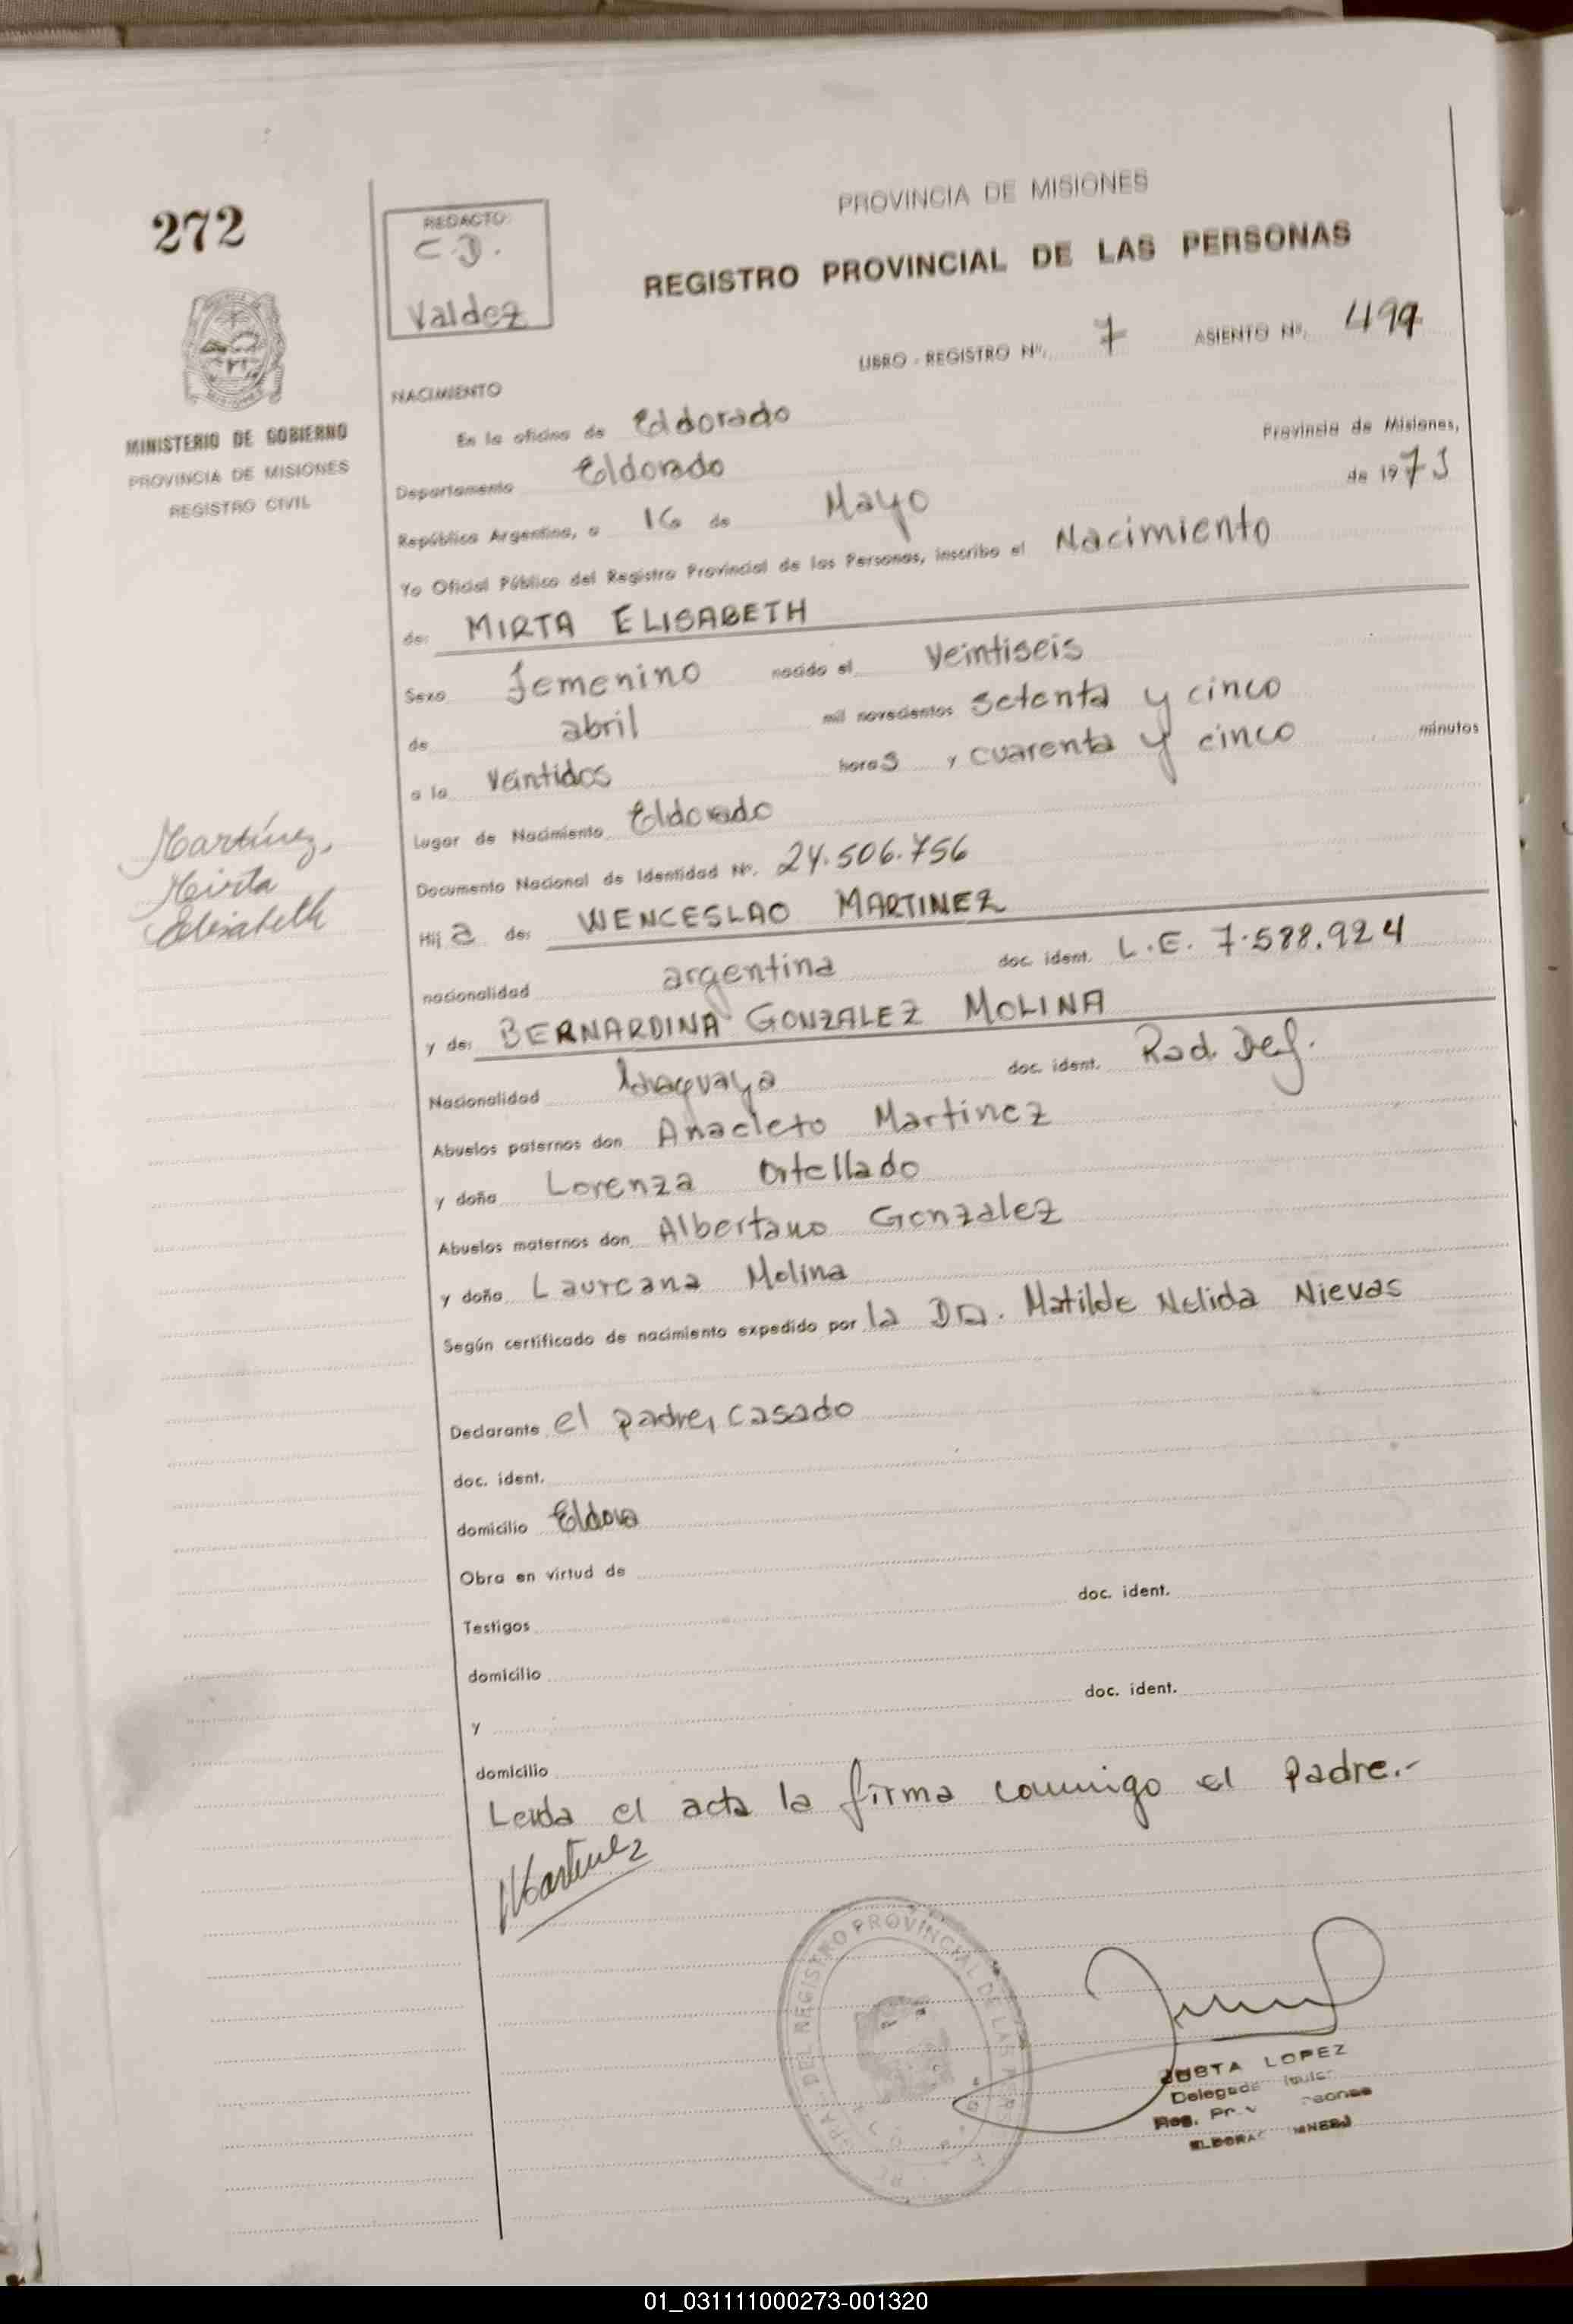 272
REDACTO:
C.D.
Valdez
PROVINCIA DE MISIONES
REGISTRO PROVINCIAL DE LAS PERSONAS
LIBRO - REGISTRO Nº. 7 ASIENTO Nº. 499
MINISTERIO DE GOBIERNO
PROVINCIA DE MISIONES
REGISTRO CIVIL
NACIMIENTO
En la oficina de Eldorado Provincia de Misiones,
Departamento Eldorado
República Argentina, a 16 de Mayo de 1975
Yo Oficial Público del Registro Provincial de las Personas, inscribo el Nacimiento
de: MIRTA ELISABETH
Sexo Femenino nacido el Veintiseis
de abril mil novecientos setenta y cinco
a la Veintidos horas y cuarenta y cinco minutos
Lugar de Nacimiento Eldorado
Documento Nacional de Identidad Nº. 24.506.756
Martínez,
Mirta
Elisabeth
Hij a de: WENCESLAO MARTINEZ
nacionalidad argentina doc. ident. L.E. 7.588.924
y de: BERNARDINA GONZALEZ MOLINA
Nacionalidad doc. ident. Rad. Def.
Abuelos paternos don Anacleto Martinez
y doña Lorenza Ortellado
Abuelos maternos don Albertano Gonzalez
y doña Laureana Molina
Según certificado de nacimiento expedido por la DRA. Matilde Nelida Nievas
Declarante el padre, casado
doc. ident.
domicilio Eldora
Obra en virtud de
Testigos doc. ident.
domicilio
y doc. ident.
domicilio
Leida el acta la firma conmigo el Padre.-
Martinez
DEL REGISTRO PROVINCIAL DE LAS
JUSTA LOPEZ
Delegada
Reg.
01_031111000273-001320